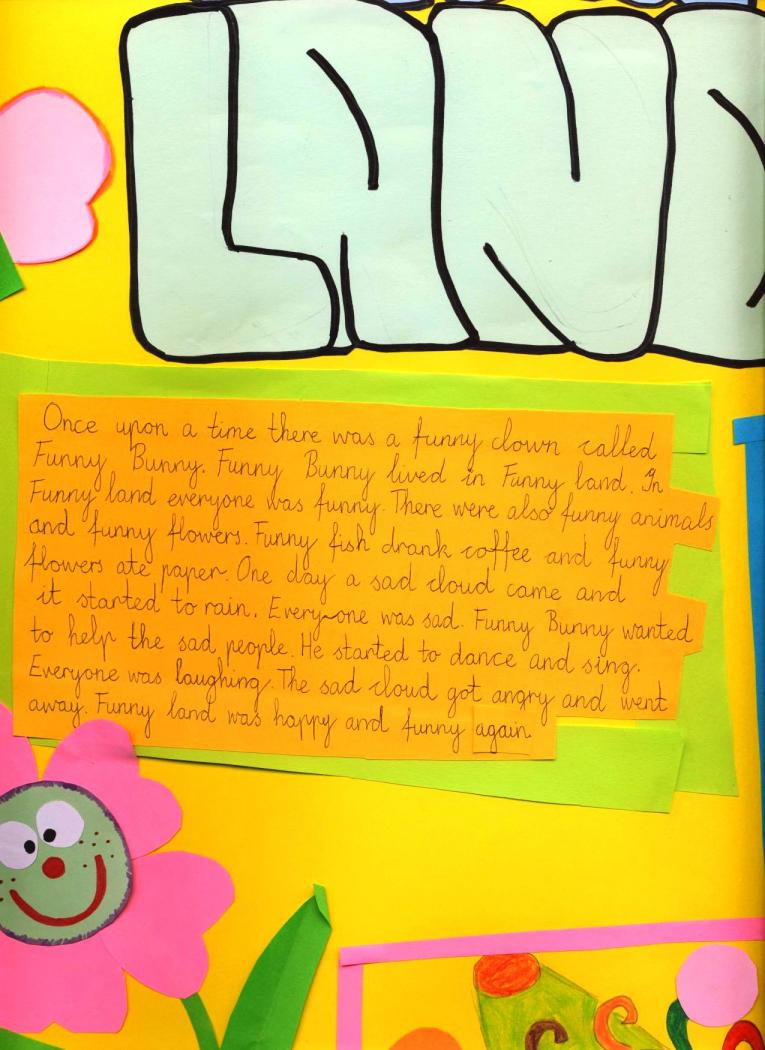 LAND
Once upon a time there was a funny clown called
Funny Bunny. Funny Bunny lived in Funny land. In
Funny land everyone was funny. There were also funny animals
and funny flowers. Funny fish drank coffee and funny
flowers ate paper. One day a sad cloud came and
it started to rain. Everyone was sad. Funny Bunny wanted
to help the sad people. He started to dance and sing.
Everyone was laughing. The sad cloud got angry and went
away. Funny land was happy and funny again.